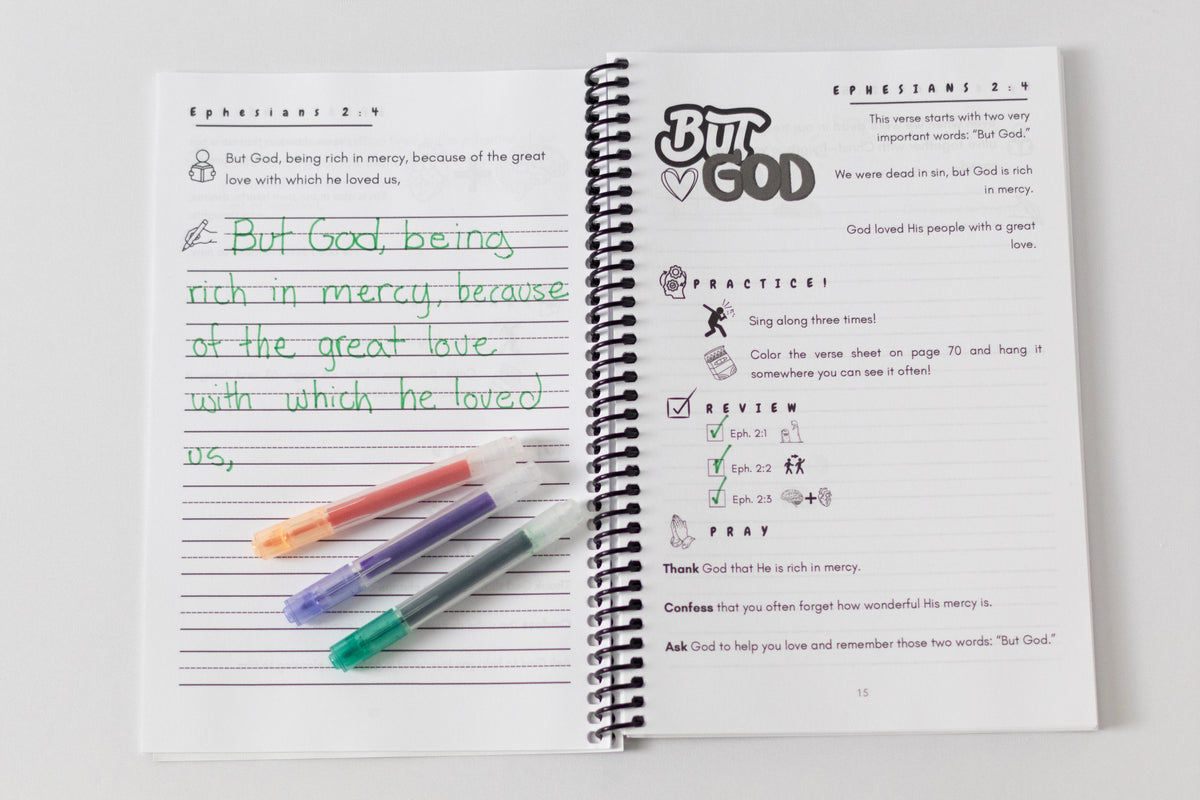 Ephesians 2:4
But God, being rich in mercy, because of the great
love with which he loved us,
But God, being
rich in mercy, because
of the great love
with which he loved
us,
EPHESIANS 2:4
BUT
GOD
This verse starts with two very
important words: “But God.”
We were dead in sin, but God is rich
in mercy.
God loved His people with a great
love.
PRACTICE!
Sing along three times!
Color the verse sheet on page 70 and hang it
somewhere you can see it often!
REVIEW
Eph. 2:1
Eph. 2:2
Eph. 2:3
PRAY
Thank God that He is rich in mercy.
Confess that you often forget how wonderful His mercy is.
Ask God to help you love and remember those two words: “But God.”
15